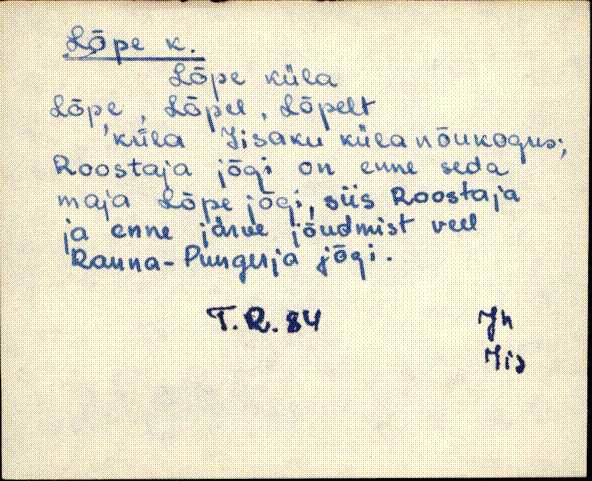 Lõpe k.
Lõpe küla
Lõpe, Lõpel, Lõpelt
küla Iisaku küla nõukogus;
Roostaja jõgi on enne seda
maja Lõpe jõgi, siis Roostaja
ja enne järve jõudmist veel
Ranna-Pungerja jõgi.
T.R. 84
Jh
Iis